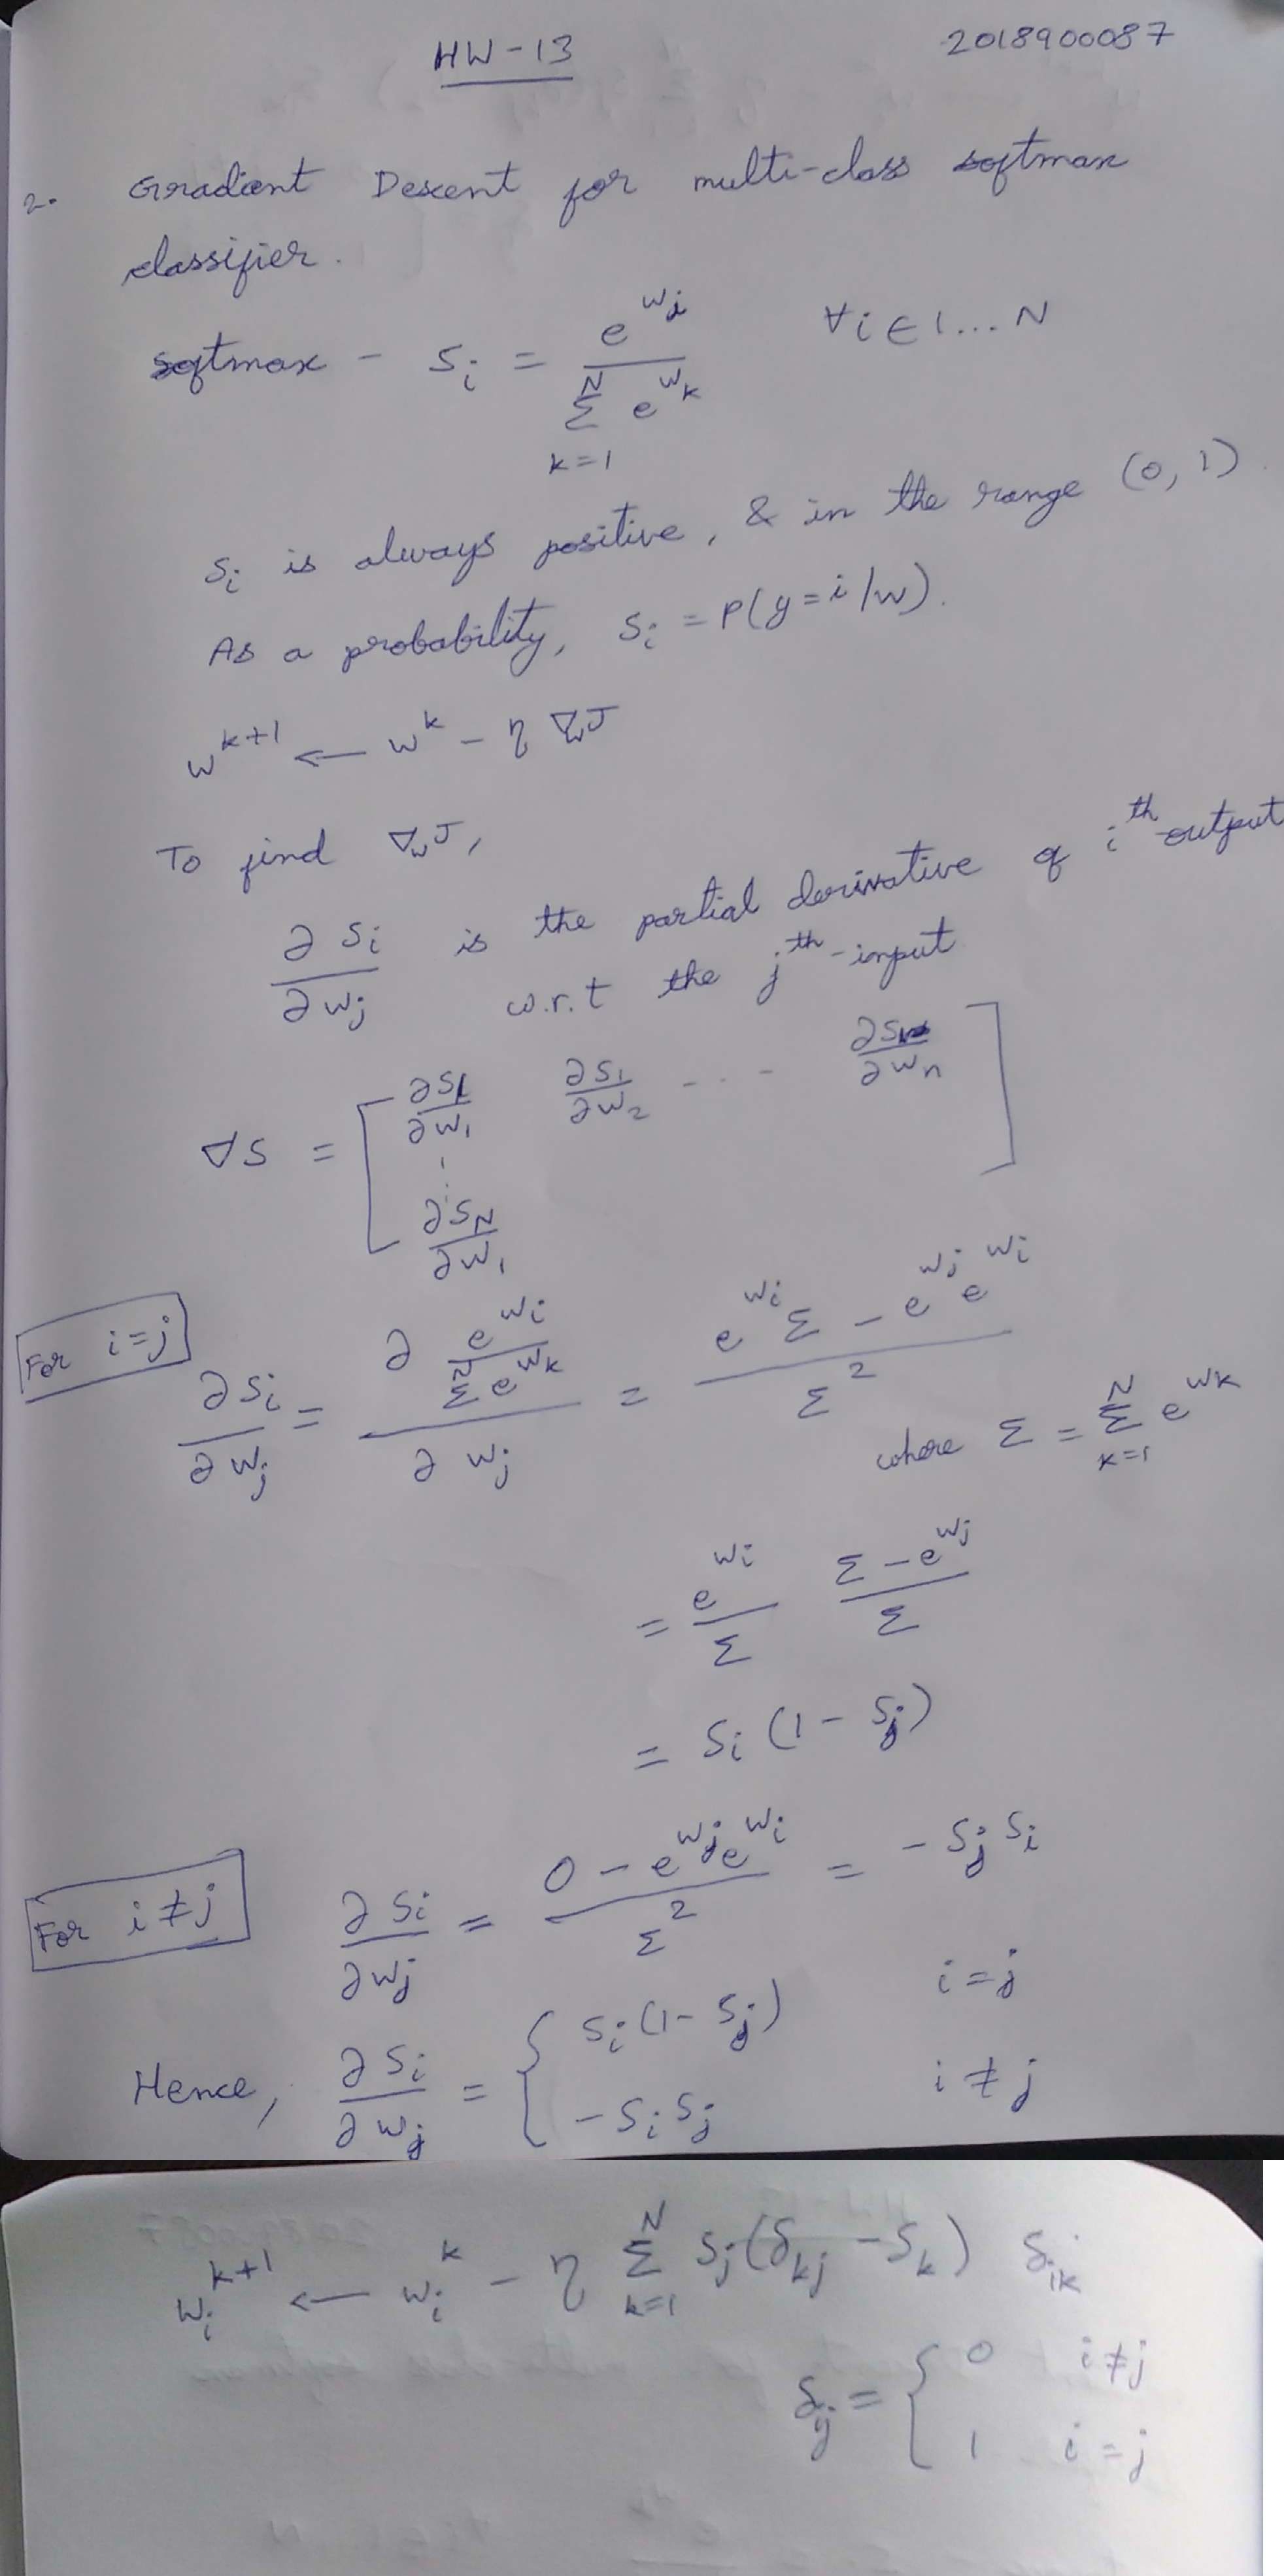 HW-13 2018900087
2. Gradient Descent for multi-class softmax
classifier.
softmax - S_i = e^{w_i} / Σ_{k=1}^{N} e^{w_k} ∀i ∈ 1...N
S_i is always positive, & in the range (0, 1).
As a probability, S_i = P(y=i/w).
w^{k+1} ← w^k - η ∇_w J
To find ∇_w J,
∂S_i/∂w_j is the partial derivative of i^{th} output
w.r.t the j^{th}-input
∇S = [ ∂S_1/∂w_1 ∂S_1/∂w_2 - - - ∂S_1/∂w_n
⋮
∂S_N/∂w_1 ]
For i=j
∂S_i/∂w_j = ∂ (e^{w_i} / Σ^N e^{w_k}) / ∂w_j = (e^{w_i} Σ - e^{w_j} e^{w_i}) / Σ^2
where Σ = Σ_{k=1}^{N} e^{w_k}
= e^{w_i}/Σ (Σ - e^{w_j})/Σ
= S_i (1 - S_j)
For i≠j ∂S_i/∂w_j = (0 - e^{w_j} e^{w_i}) / Σ^2 = - S_j S_i
Hence, ∂S_i/∂w_j = { S_i (1 - S_j) i=j
-S_i S_j i≠j
w_i^{k+1} ← w_i^k - η Σ_{k=1}^{N} S_j (δ_{kj} - S_k) δ_{ik}
δ_{ij} = { 0 i≠j
1 i=j